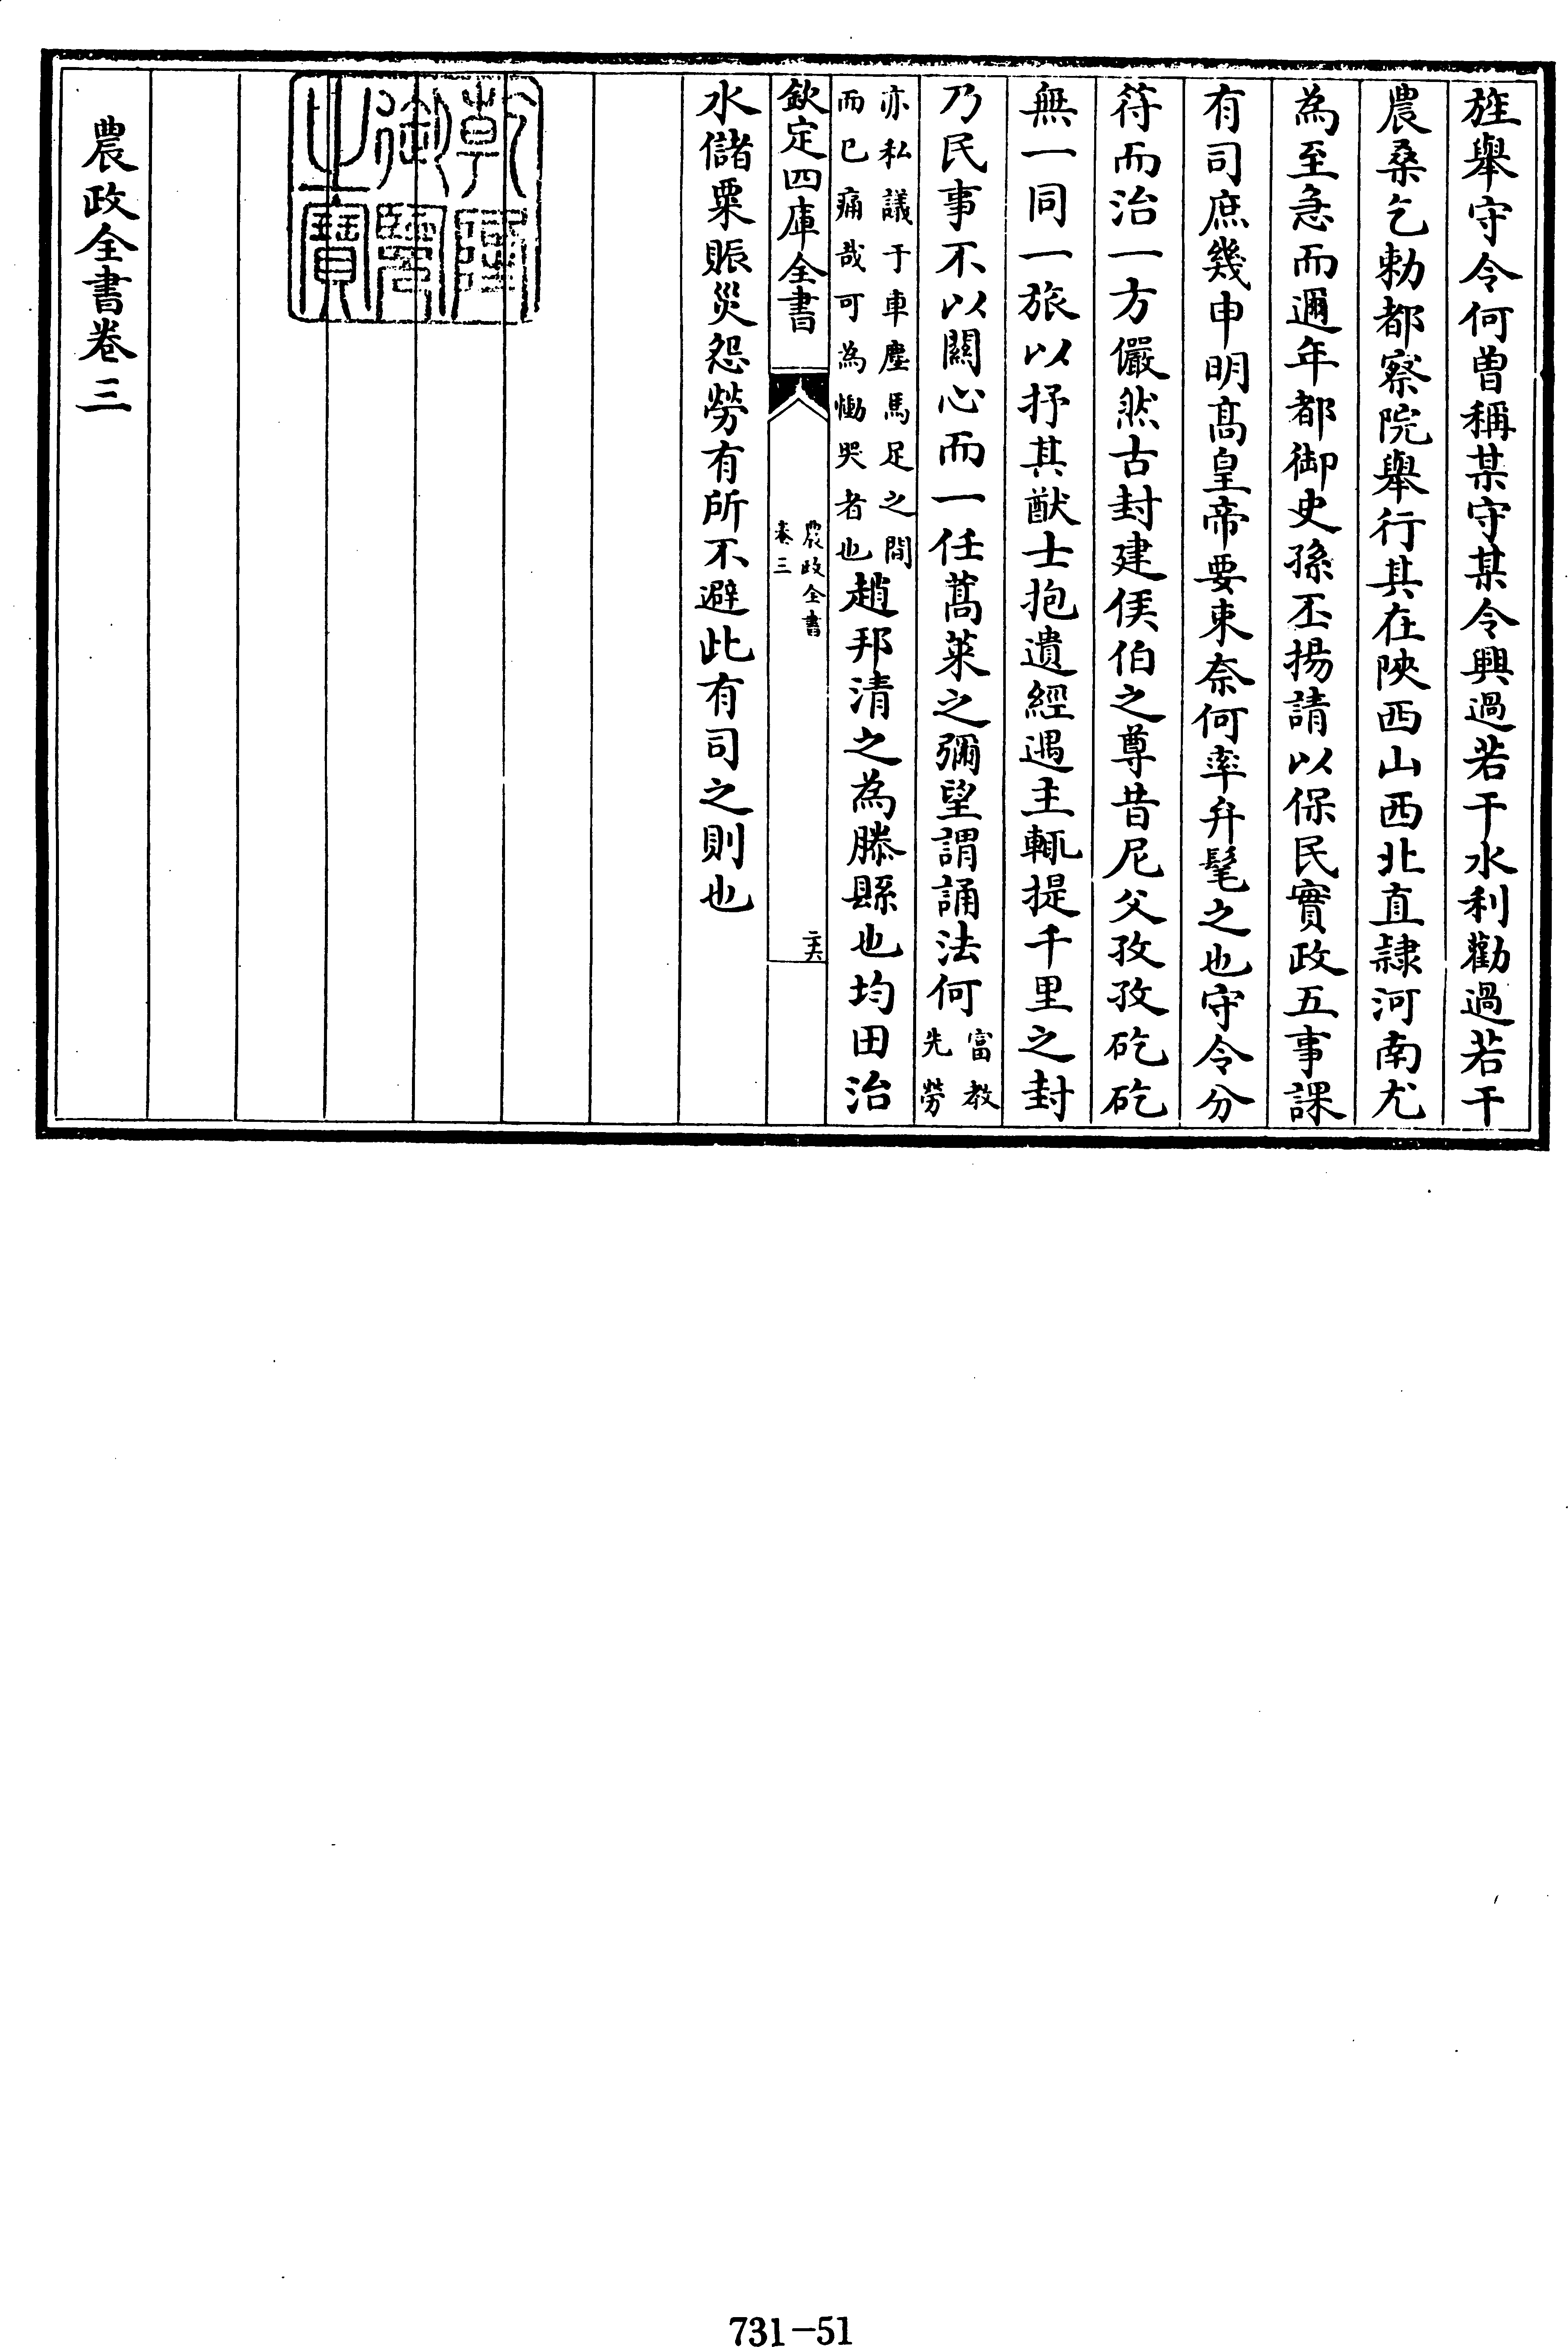 旌舉守令何曽稱某守某令興過若干水利勸過若干
農桑乞勅都察院舉行其在陜西山西北直𨽻河南尤
為至急而邇年都御史孫丕揚請以保民實政五事課
有司庶幾申明髙皇帝要束奈何率弁髦之也守令分
符而治一方儼然古封建侯伯之尊昔尼父孜孜矻矻
無一同一旅以抒其猷士抱遺經遇主輒提千里之封
乃民事不以闗心而一任蒿萊之彌望謂誦法何富教
先勞
亦私議于車塵馬足之間
而已痛哉可為慟哭者也趙邦清之為滕縣也均田治
欽定四庫全書
農政全書
卷三
二六
水儲粟賑災怨勞有所不避此有司之則也
乾隆
御覽
之寶
農政全書卷三
731-51